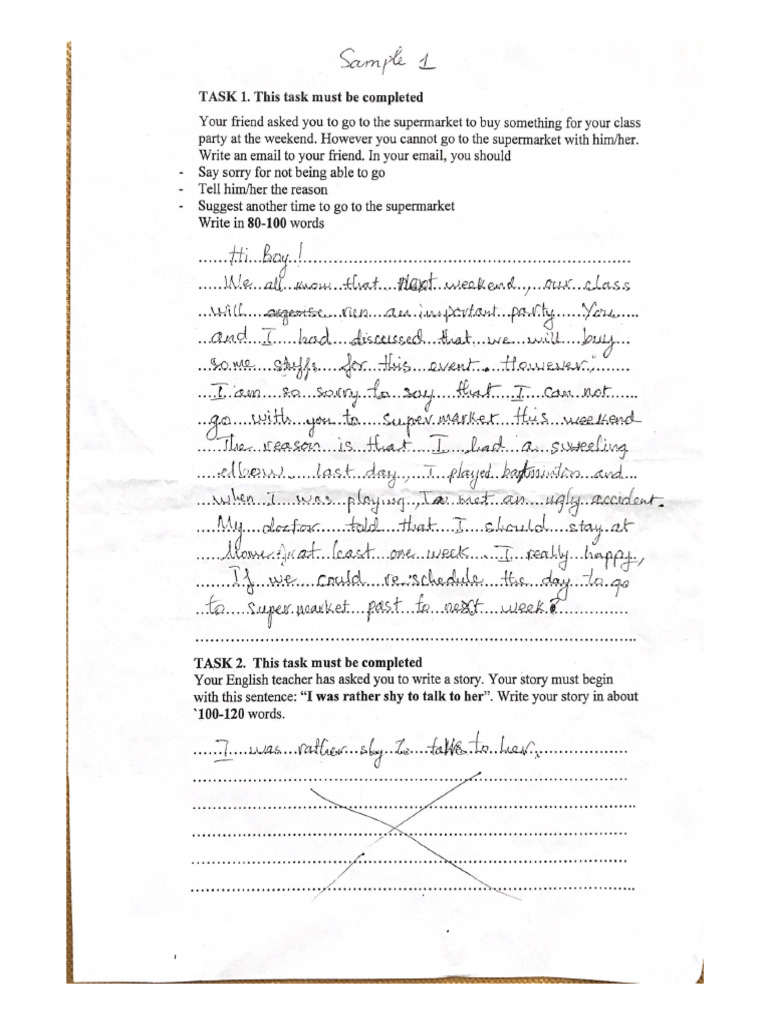 Sample 1
TASK 1. This task must be completed
Your friend asked you to go to the supermarket to buy something for your class
party at the weekend. However you cannot go to the supermarket with him/her.
Write an email to your friend. In your email, you should
- Say sorry for not being able to go
- Tell him/her the reason
- Suggest another time to go to the supermarket
Write in 80-100 words
Hi Boy!
We all know that next weekend, our class
will run an important party. You
and I had discussed that we will buy
some stuffs for this event. However,
I am so sorry to say that I can not
go with you to supermarket this weekend
The reason is that I had a sweeling
elbow last day, I played badmintin and
when I was playing, I met an ugly accident.
My doctor told that I should stay at
Home at least one week. I really happy,
If we could re schedule the day to go
to supermarket past to next week?
TASK 2. This task must be completed
Your English teacher has asked you to write a story. Your story must begin
with this sentence: “I was rather shy to talk to her”. Write your story in about
`100-120 words.
I was rather shy to talk to her.